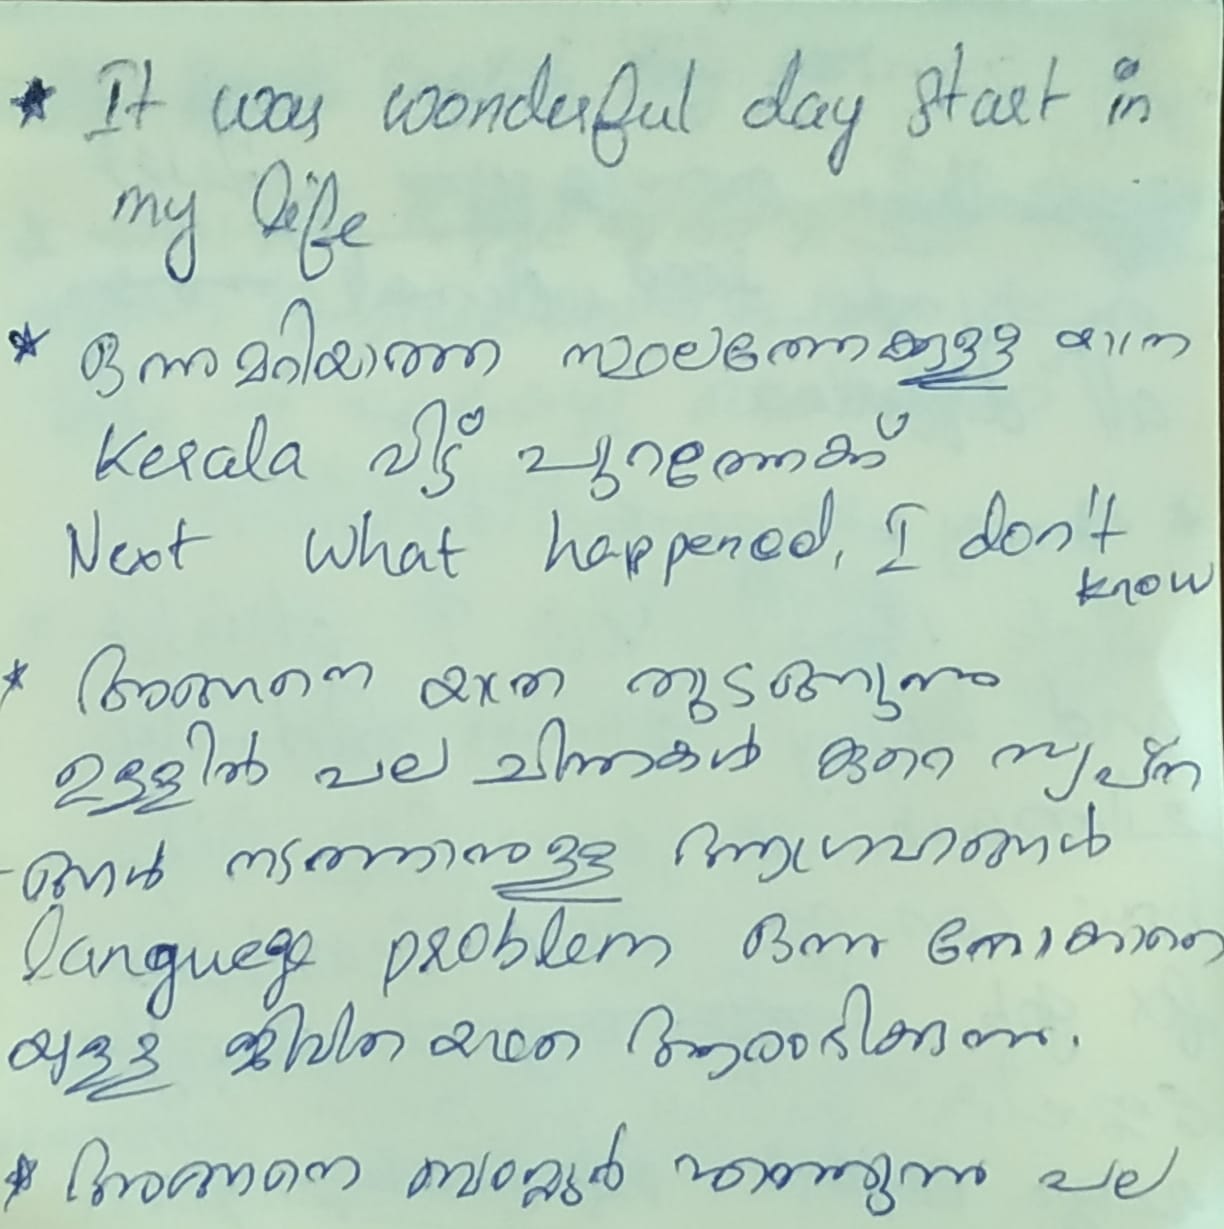 * It was wonderful day start in
my life
* ഒന്നുമറിയാത്ത സ്ഥലത്തേക്കുള്ള യാത്ര
Kerala വിട്ട് പുറത്തേക്ക്
Next what happened, I don't
know
* അങ്ങനെ യാത്ര തുടങ്ങുന്നു
ഉള്ളിൽ പല ചിന്തകൾ കുറെ സ്വപ്ന
-ങ്ങൾ നടത്താനുള്ള ആഗ്രഹങ്ങൾ
languege problem ഒന്നു നോക്കാതെ
യുള്ള ജീവിത യാത്ര ആരംഭിക്കുന്നു.
* അങ്ങനെ ബാംഗ്ലൂർ എത്തുന്നു പല